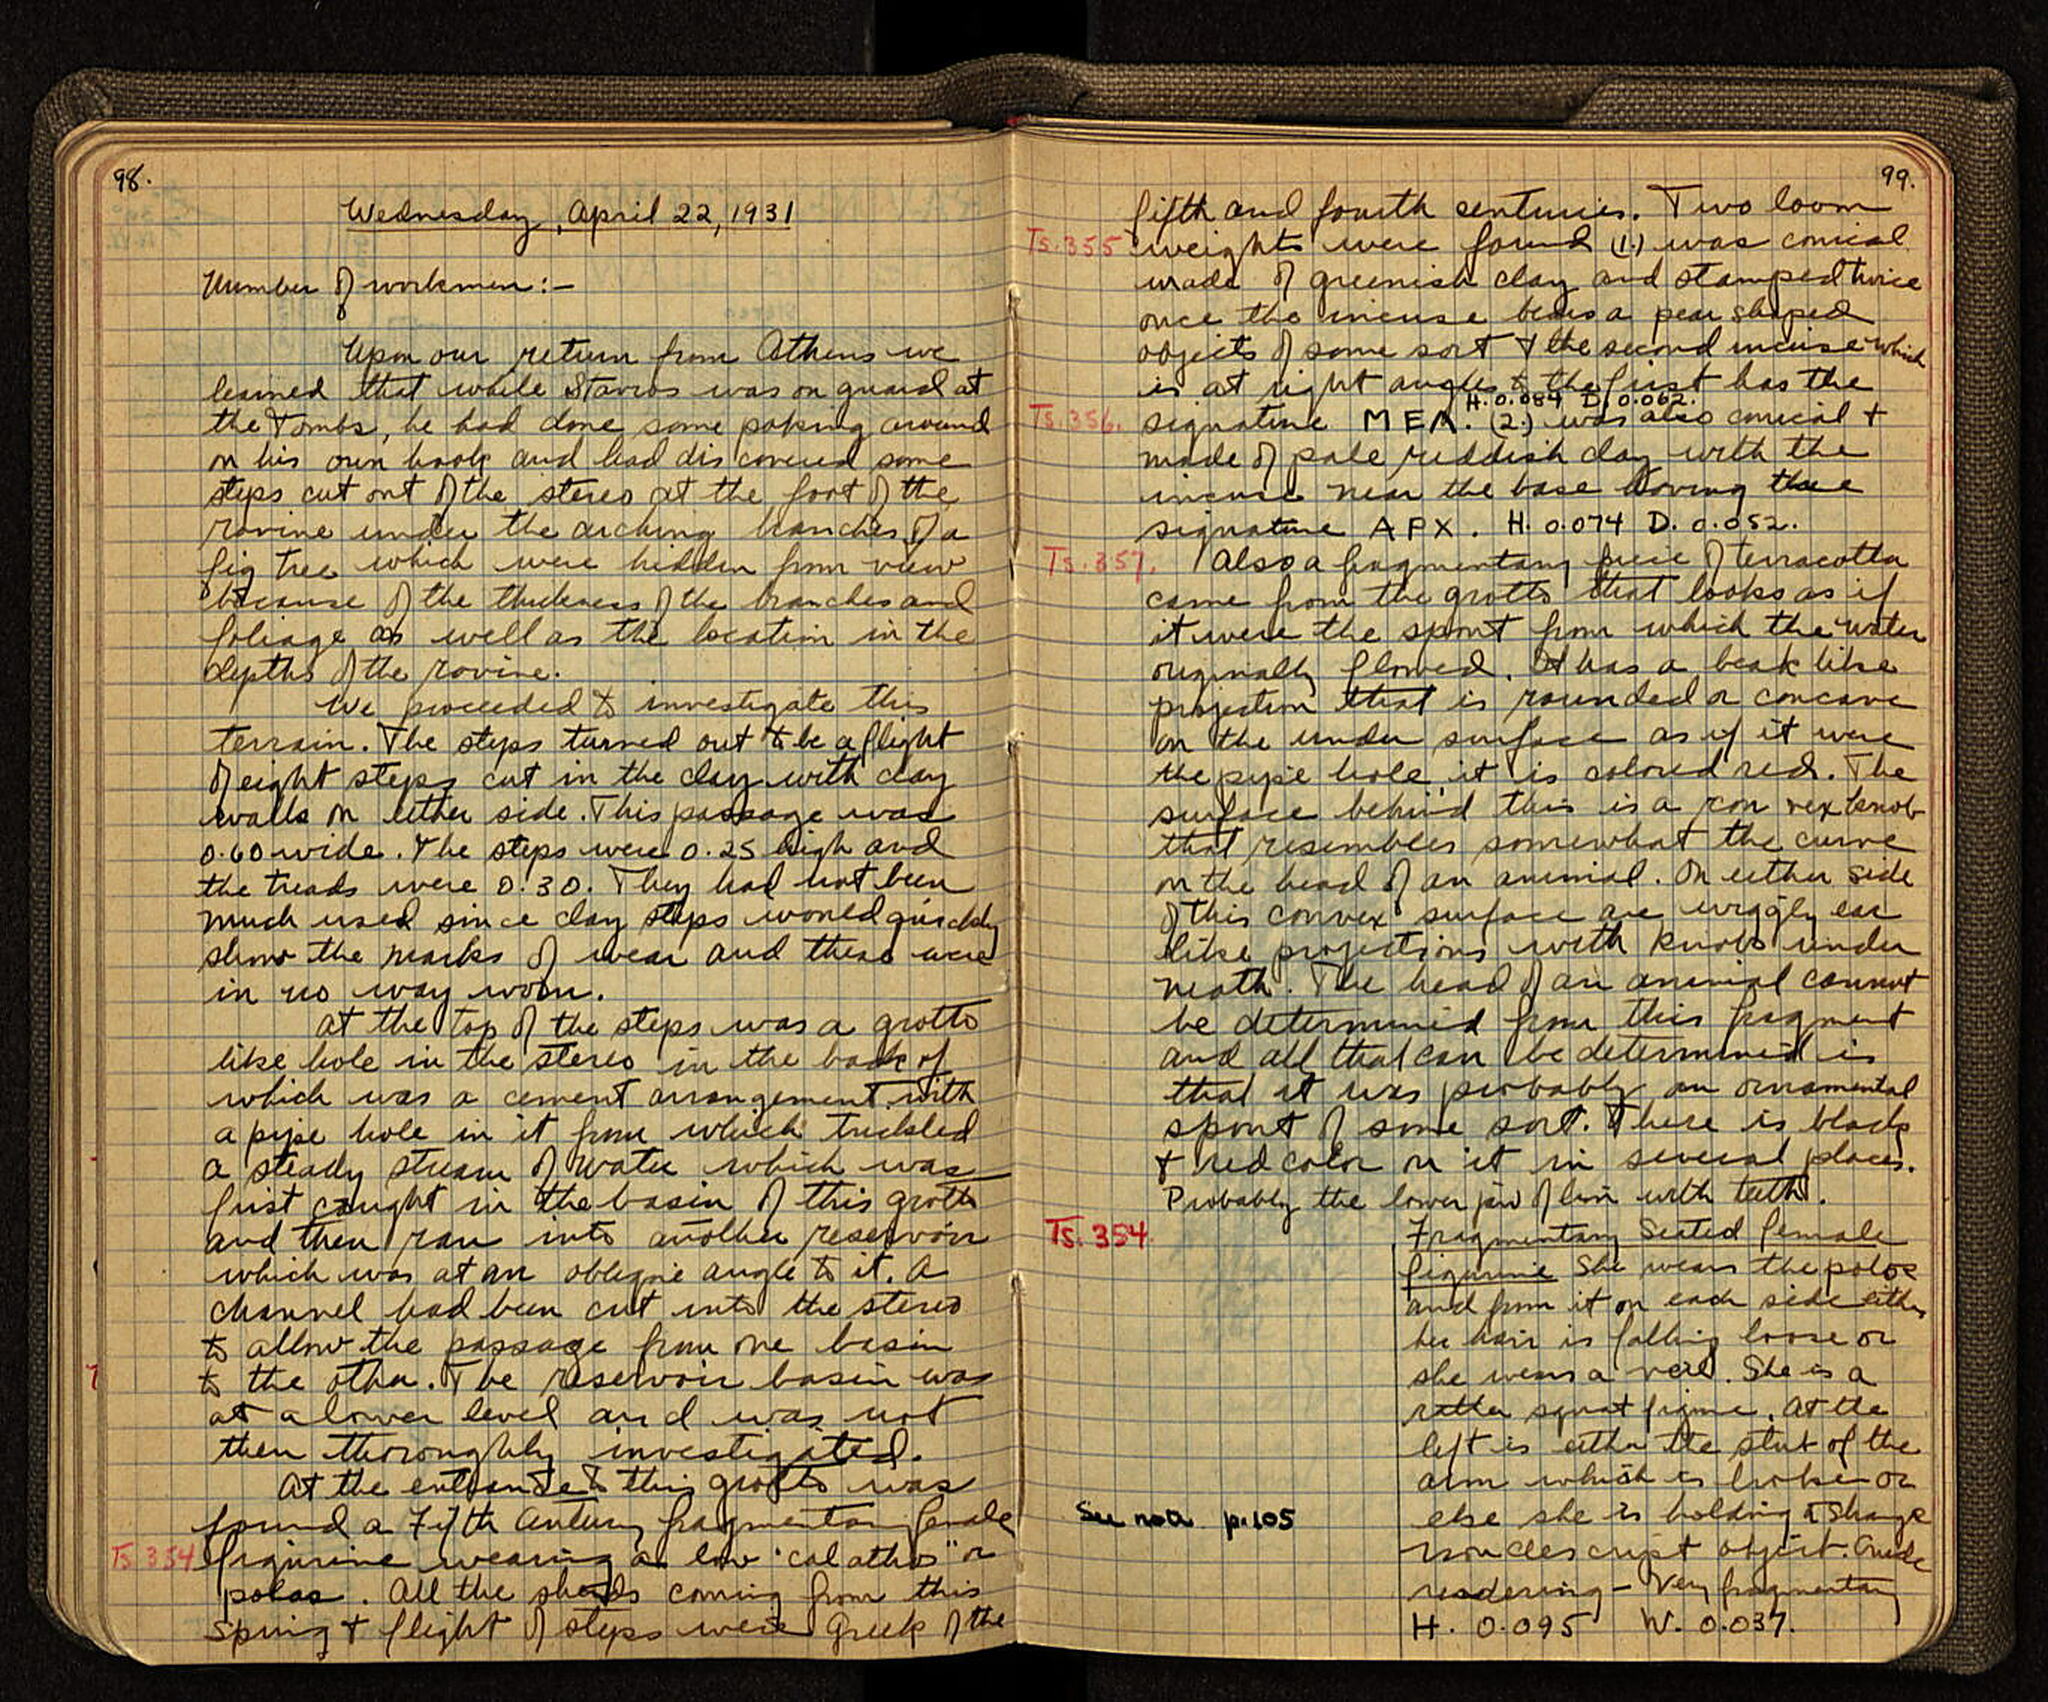 98.
Wednesday, April 22, 1931
Number of workmen:-
Upon our return from Athens we
learned that while Stavros was on guard at
the Tombs, he had done some poking around
on his own hook and had discovered some
steps cut out of the stereo at the foot of the
ravine under the arching branches of a
fig tree which were hidden from view
because of the thickness of the branches and
foliage as well as the location in the
depths of the ravine.
We proceeded to investigate this
terrain. The steps turned out to be a flight
of eight steps cut in the clay with clay
walls on either side. This passage was
0.60 wide. The steps were 0.25 high and
the treads were 0.30. They had not been
much used since clay steps would quickly
show the marks of wear and these were
in no way worn.
At the top of the steps was a grotto
like hole in the stereo in the back of
which was a cement arrangement with
a pipe hole in it from which trickled
a steady stream of water which was
first caught in the basin of this grotto
and then ran into another reservoir
which was at an oblique angle to it. A
channel had been cut into the stereo
to allow the passage from one basin
to the other. The reservoir basin was
at a lower level and was not
then thoroughly investigated.
At the entrance to this grotto was
found a Fifth Century fragmentary female
Ts 354 figurine wearing a low "calathos" or
polos. All the sherds coming from this
spring + flight of steps were Greek of the
99.
fifth and fourth centuries. Two loom
Ts. 355 weights were found (1.) was conical
made of greenish clay and stamped twice
once the incuse bears a pear shaped
objects of some sort + the second incuse which
is at right angles to the first has the
H. 0.084 D. 0.062.
Ts. 356. signature MEΛ. (2.) was also conical +
made of pale reddish clay with the
incuse near the base having the
signature APX. H. 0.074 D. 0.052.
Ts. 357. Also a fragmentary piece of terracotta
came from the grotto that looks as if
it were the spout from which the water
originally flowed. It has a beak like
projection that is rounded or concave
on the under surface as if it were
the pipe hole, it is colored red. The
surface behind this is a convex knob
that resembles somewhat the curve
on the head of an animal. On either side
of this convex surface are wiggly ear
like projections with knobs under
neath. The head of an animal cannot
be determined from this fragment
and all that can be determined is
that it was probably an ornamental
spout of some sort. There is black
+ red color on it in several places.
Probably the lower jaw of lion with teeth.
Ts. 354. Fragmentary Seated female
figurine She wears the polos
and from it on each side either
her hair is falling loose or
she wears a veil. She is a
rather squat figure. At the
left is either the stub of the
arm which is broke or
else she is holding a strange
nondescript object. Crude
rendering - Very fragmentary
H. 0.095 W. 0.037.
See note p. 105